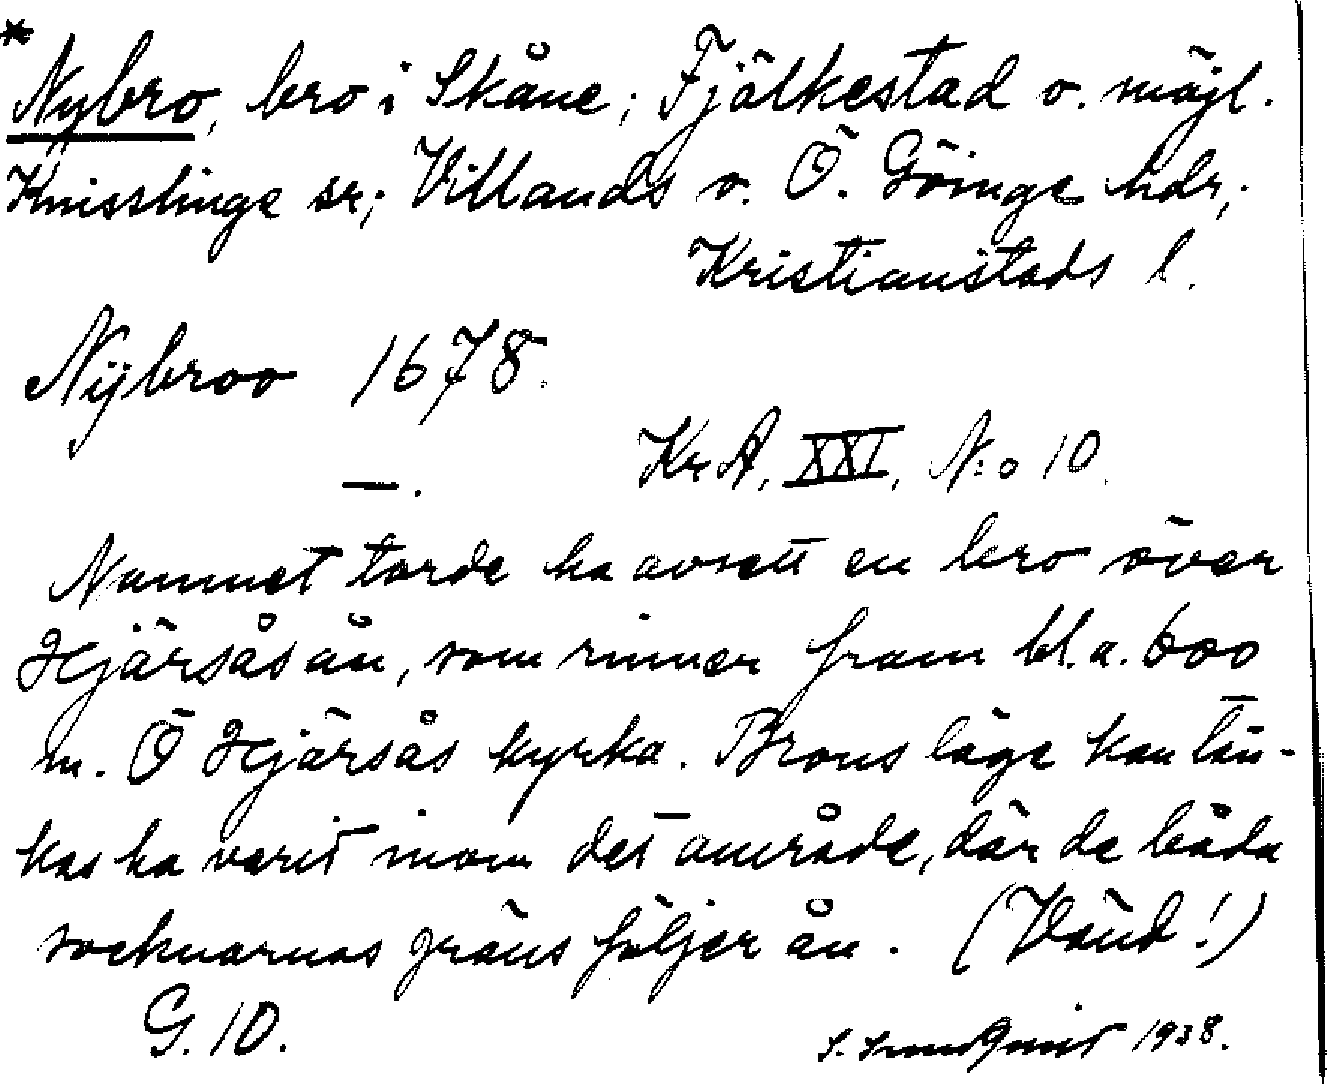 *Nybro, bro i Skåne; Fjälkestad o. möjl.
Knisslinge sr; Villands o. Ö. Göinge hdr,
Kristianstads l.
Nÿbroo 1678.
KrA, XXI, N:o 10.
—.
Namnet torde ha avsett en bro över
Hjärsåsån, som rinner fram bl.a. 600
m. Ö Hjärsås kyrka. Brons läge kan tän-
kas ha varit inom det område, där de båda
socknarnas gräns följer ån. (Vänd!)
G. 10.
S. 1938.